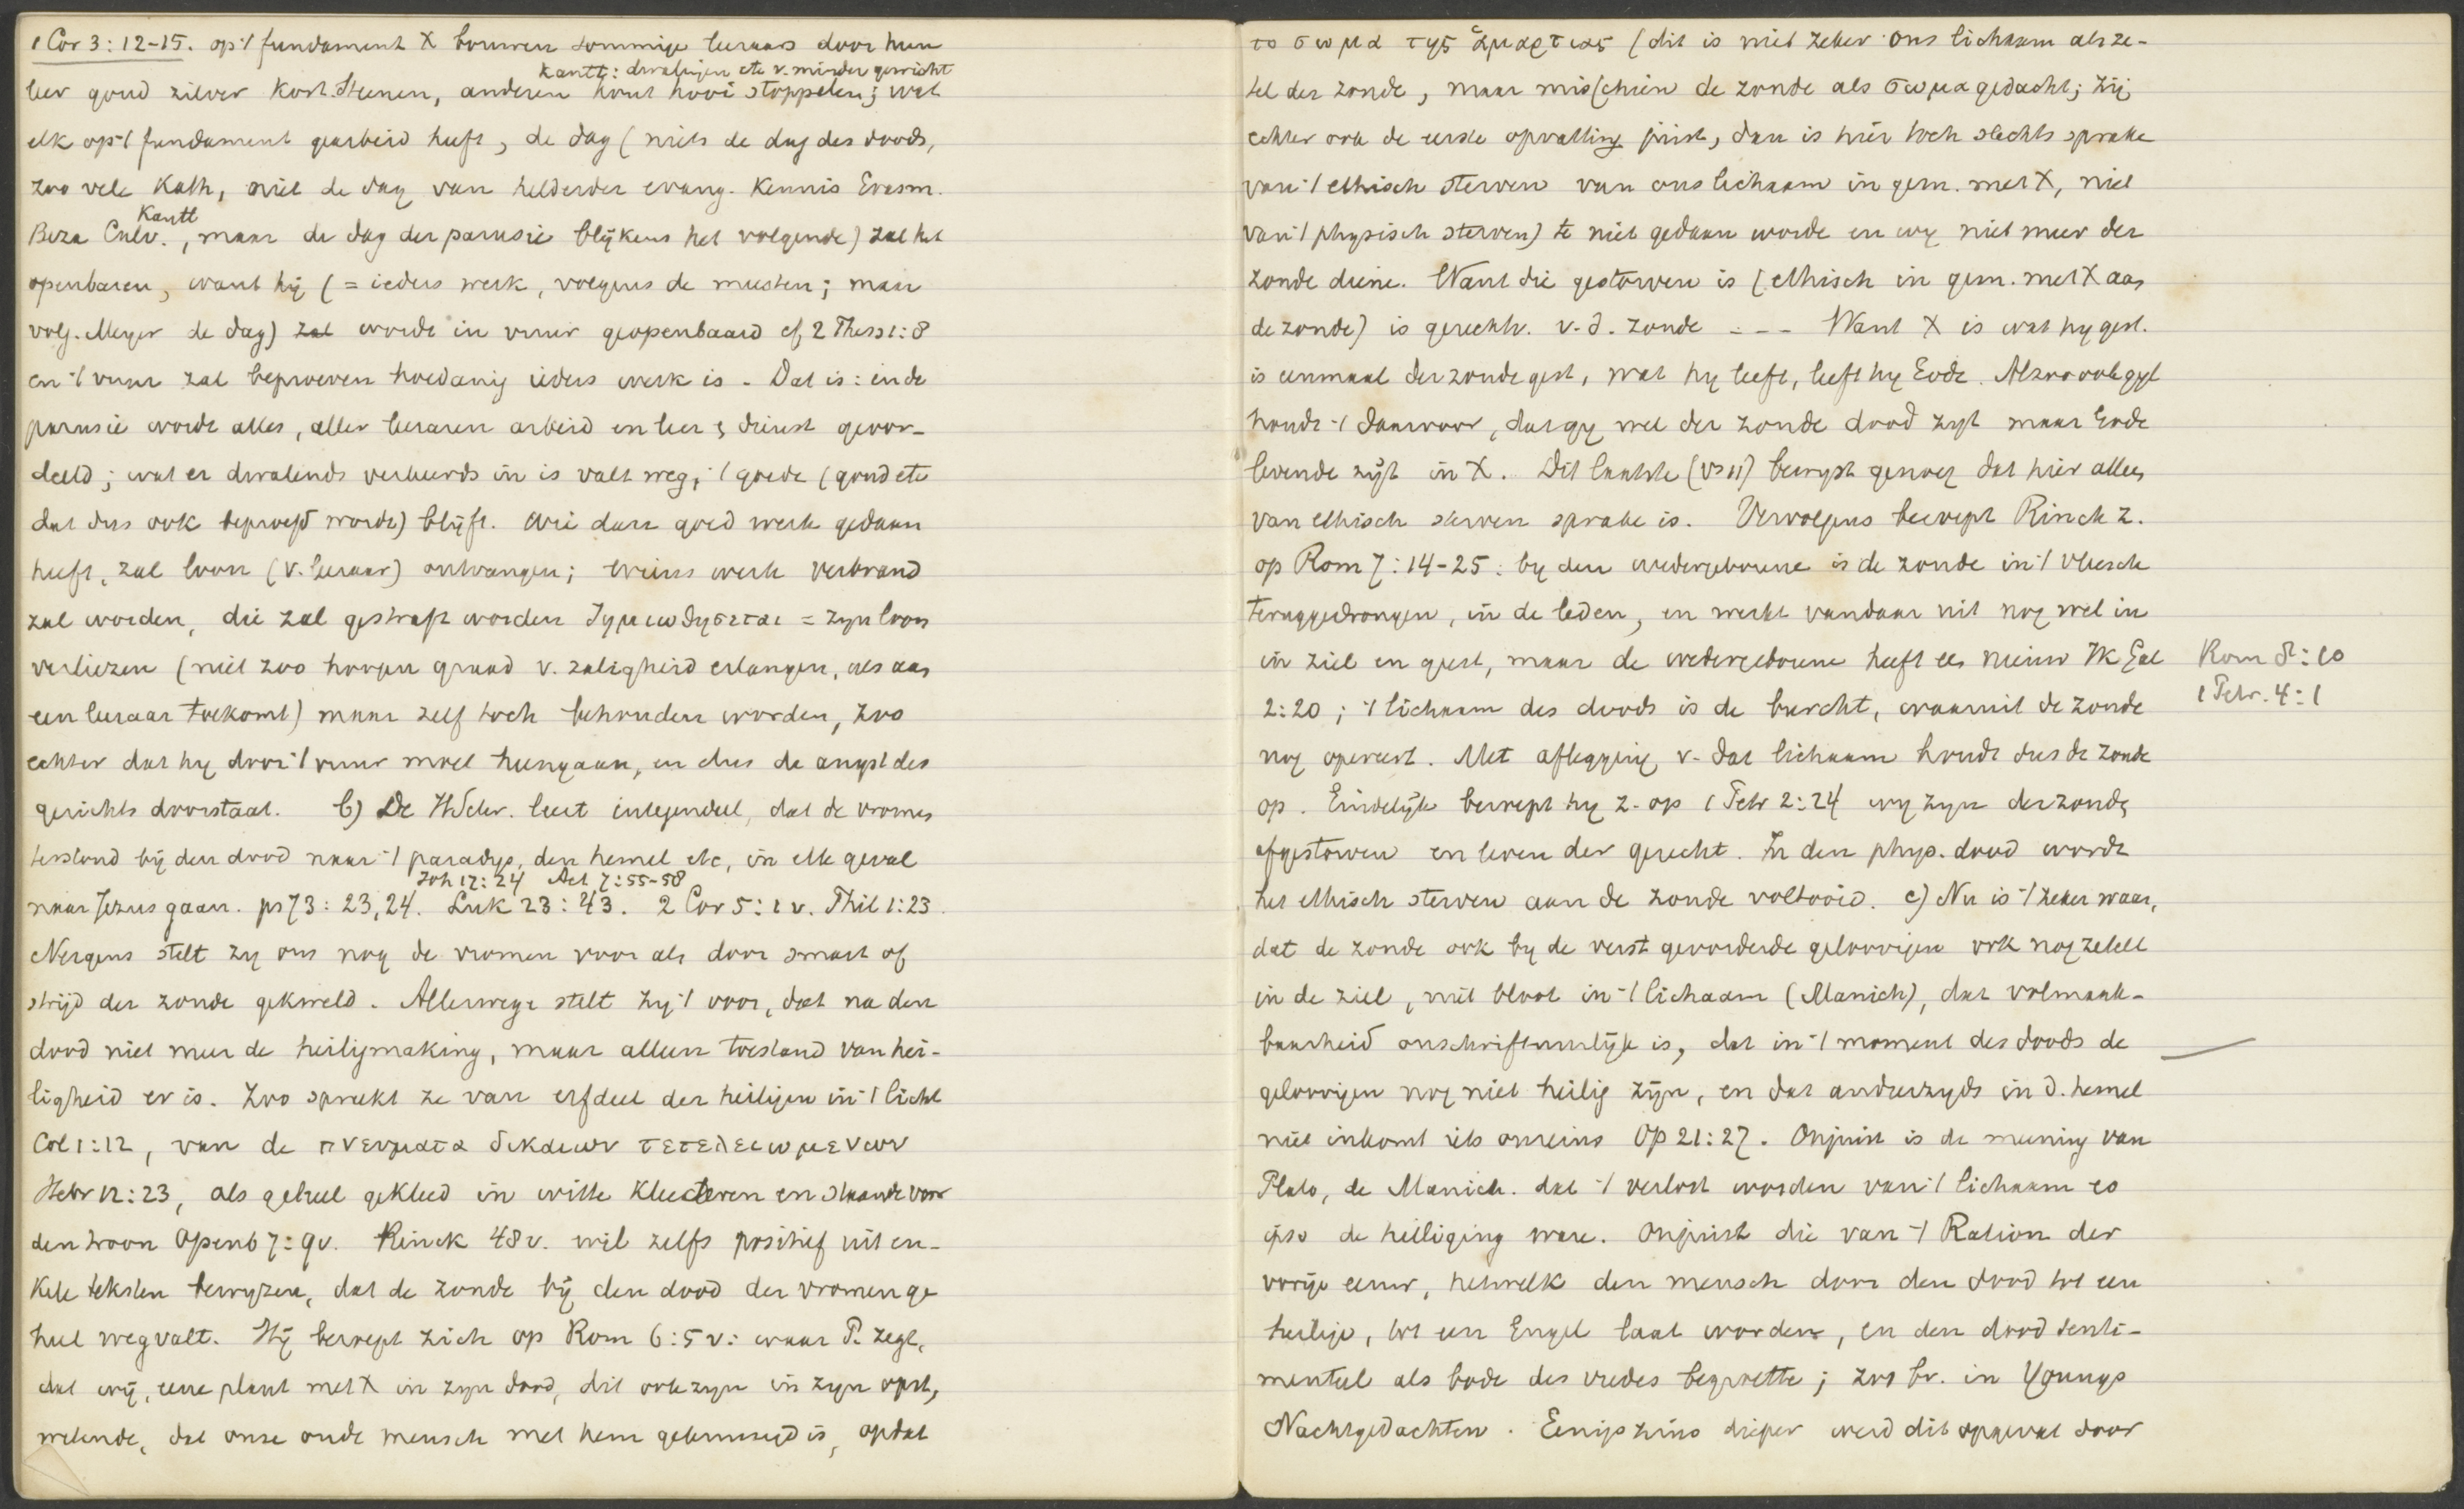 1 Cor 3:12-15. op 't fundament X bouwen sommige leeraars door hun
kantt: dwalingen etc v. minder gewicht
leer goud zilver kost. steenen, anderen hout hooi stoppelen; wat
elk op 't fundament gearbeid heeft, de dag (niets de dag des doods,
zoo vele Kath, niet de dag van helderder evang. Kennis Erasm.
Kantt
Beza Calv., maar de dag der parusie blijkens het volgende) zal het
openbaren, want hij (= ieders werk, volgens de meesten; maar
volg. Meyer de dag) zal wordt in vuur geopenbaard cf 2 Thess 1:8
en 't vuur zal beproeven hoedanig ieders werk is. Dat is: in de
parusie wordt alles, aller leeraren arbeid en leer & dienst geoor-
deeld; wat er dwalends verkeerds in is valt weg, 't goede (goud etc
dat dus ook beproefd wordt) blijft. Wie dan goed werk gedaan
heeft, zal loon (v. leeraar) ontvangen; wiens werk verbrand
zal worden, die zal gestraft worden ζημιωθησεται = zyn loon
verliezen (niet zoo hoogen graad v. zaligheid erlangen, als aan
een leeraar toekomt) maar zelf toch behouden worden, zoo
echter dat hy door 't vuur moet heengaan, en dus de angst des
gerichts doorstaat. b) De HSchr. leert integendeel, dat de vromen
terstond bij den dood naar 't paradys, den hemel etc, in elk geval
Joh 17:24 Act 7:55-58
naar Jezus gaan. ps 73:23,24. Luk 23:43. 2 Cor 5:1 v. Phil 1:23.
Nergens stelt zy ons nog de vromen voor als door smart of
strijd der zonde gekweld. Allerwege stelt zy 't voor, dat na den
dood niet meer de heiligmaking, maar alleen toestand van hei-
ligheid er is. Zoo spreekt ze van erfdeel der heiligen in 't licht
Col 1:12, van de πνευματα δικαιων τετελειωμενων
Hebr 12:23, als geheel gekleed in witte kleederen en staande voor
den troon Openb 7:9v. Rinck 48v. wil zelfs positief uit en-
kele teksten bewyzen, dat de zonde bij den dood der vromen ge
heel wegvalt. Hij beroept zich op Rom 6:5v: waar P. zegt,
dat wij, eene plant met X in zyn dood, dit ook zyn in zyn opst,
wetende, dat onze oude mensch met hem gekruisigd is, opdat
το σωμα της ἁμαρτιας (dit is niet zeker ons lichaam als ze-
tel der zonde, maar misschien de zonde als σωμα gedacht; zij
echter ook de eerste opvatting juist, dan is hier toch slechts sprake
van 't ethisch sterven van ons lichaam in gem. met X, niet
van 't physisch sterven) te niet gedaan worde en wy niet meer der
zonde diene. Want die gestorven is (ethisch in gem. met X aan
de zonde) is gerechtv. v. d. zonde - - - Want X is wat hy gest.
is eenmaal der zonde gest, wat hy leeft, leeft hy Gode. Alzoo ook gyl
houdt 't daarvoor, dat gy wel der zonde dood zyt maar Gode
levende zijt in X. Dit laatste (vs 11) bewyst genoeg dat hier alleen
van ethisch sterven sprake is. Vervolgens beroept Rinck z.
op Rom 7:14-25: by den wedergeborene is de zonde in 't vleesch
teruggedrongen, in de leden, en werkt vandaar uit nog wel in
in ziel en geest, maar de wedergeborene heeft een nieuw Ik Gal
Rom 8:10
2:20; 't lichaam des doods is de burcht, waaruit de zonde
1 Petr. 4:1
nog opereert. Met aflegging v. dat lichaam houdt dus de zonde
op. Eindelijk beroept hy z. op 1 Petr 2:24 wy zyn der zonde
afgestorven en leven der gerecht. In den phys. dood wordt
het ethisch sterven aan de zonde voltooid. c) Nu is 't zeker waar,
dat de zonde ook by de verst gevorderde geloovigen ook nog zetelt
in de ziel, niet bloot in 't lichaam (Manich), dat volmaak-
baarheid onschriftuurlijk is, dat in 't moment des doods de
geloovigen nog niet heilig zijn, en dat anderzyds in d. hemel
niet inkomt iets onreins Op 21:27. Onjuist is de meening van
Plato, de Manich. dat 't verlost worden van 't lichaam eo
ipso de heiliging ware. Onjuist die van 't Ration der
vorige eeuw, hetwelk den mensch door den dood tot een
heilige, tot een Engel laat worden, en den dood senti-
menteel als bode des vredes begroette; zoo bv. in Youngs
Nachtgedachten. Eenigszins dieper werd dit opgevat door